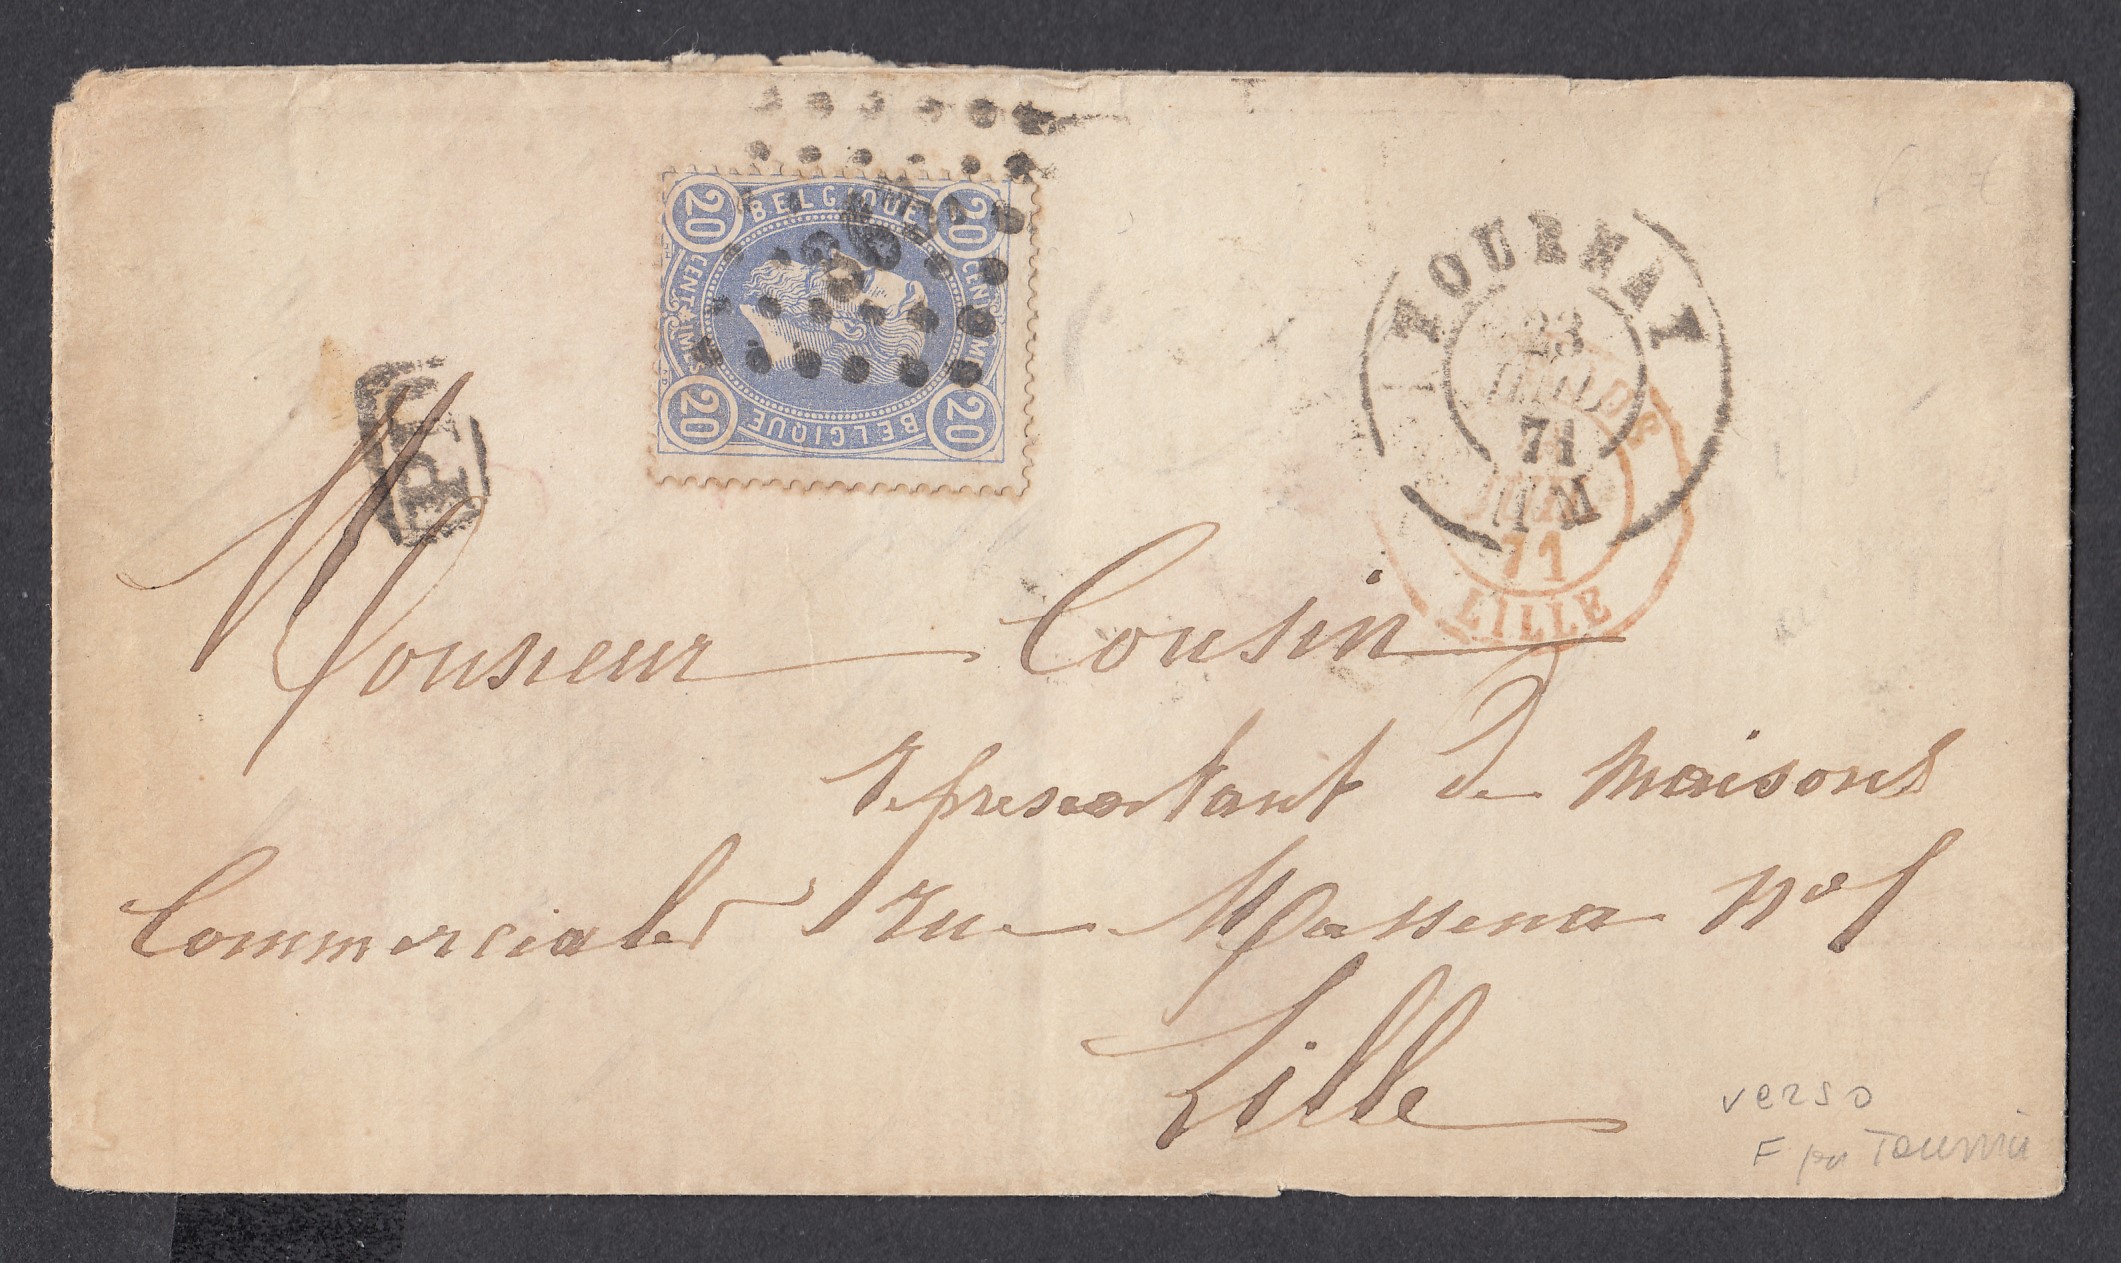 BELGIQUE
20 20
CENTIMES CENTIMES
20 20
BELGIQUE
PD
TOURNAY
23
JUIN
71
11M
JUIN
71
LILLE
Monsieur Cousin
représentant de maisons
Commerciales rue Massena nº
Lille
verso
F